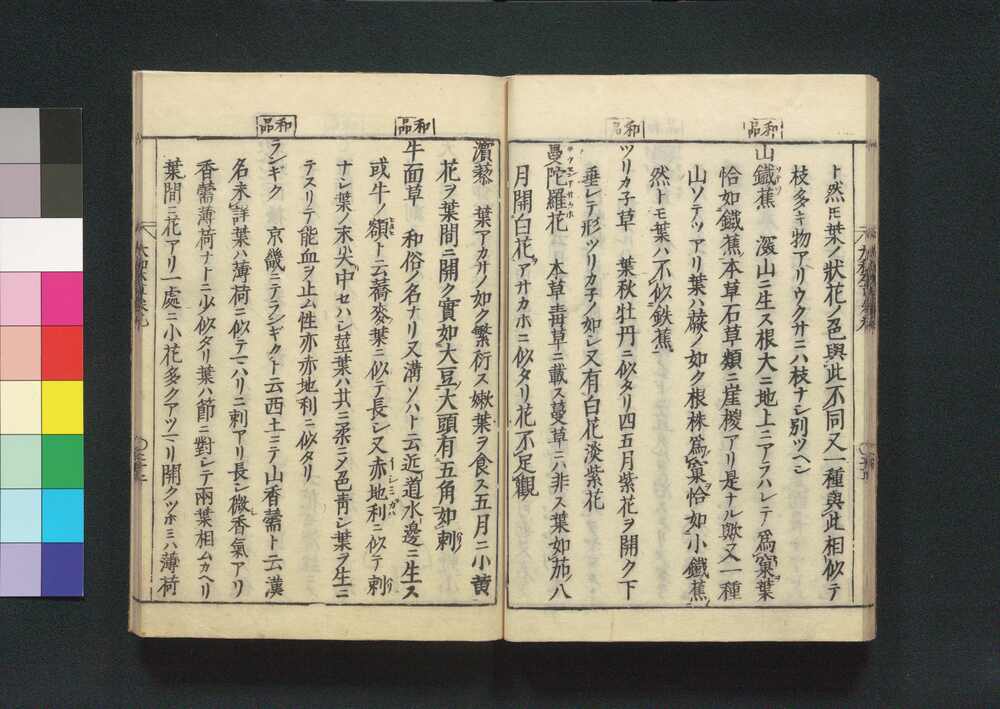 ト然トモ葉ノ狀花ノ色與此不同又一種與此相似テ
枝多キ物アリウクサニハ枝ナシ別ツヘシ
和品
山鐵蕉 深山ニ生ス根大ニ地上ニアラハレテ爲窠葉
恰如鐵蕉本草石草類ニ崖椶アリ是ナル歟又一種
山ソテツアリ葉ハ蕨ノ如ク根株爲窠恰如小鐵蕉
然トモ葉ハ不似鉄蕉
和品
ツリカ子草 葉秋牡丹ニ似タリ四五月紫花ヲ開ク下
垂レテ形ツリカ子ノ如シ又有白花淡紫花
曼陀羅花 本草毒草ニ載ス蔓草ニハ非ス葉如茄八
月開白花アサカホニ似タリ花不足觀
濵蔾 葉アカサノ如ク繁衍ス嫩葉ヲ食ス五月ニ小黄
花ヲ葉間ニ開ク實如大豆大頭有五角如刺
和品
牛面草 和俗ノ名ナリ又溝ソハト云近道水邊ニ生ス
或牛ノ額ト云蕎麥葉ニ似テ長シ又赤地利ニ似テ刺
ナシ葉ノ末尖中セハシ莖葉ハ共ニ柔ニメ色青シ葉ヲ生ニ
テスリテ能血ヲ止ム性亦赤地利ニ似タリ
和品
ランギク 京畿ニテランギクト云西土ニテ山香薷ト云漢
名未詳葉ハ薄荷ニ似テマハリニ刺アリ長シ微香氣アリ
香薷薄荷ナトニ少似タリ葉ハ節ニ對シテ兩葉相ムカヘリ
葉間ニ花アリ一處ニ小花多クアツマリ開クツホミハ薄荷